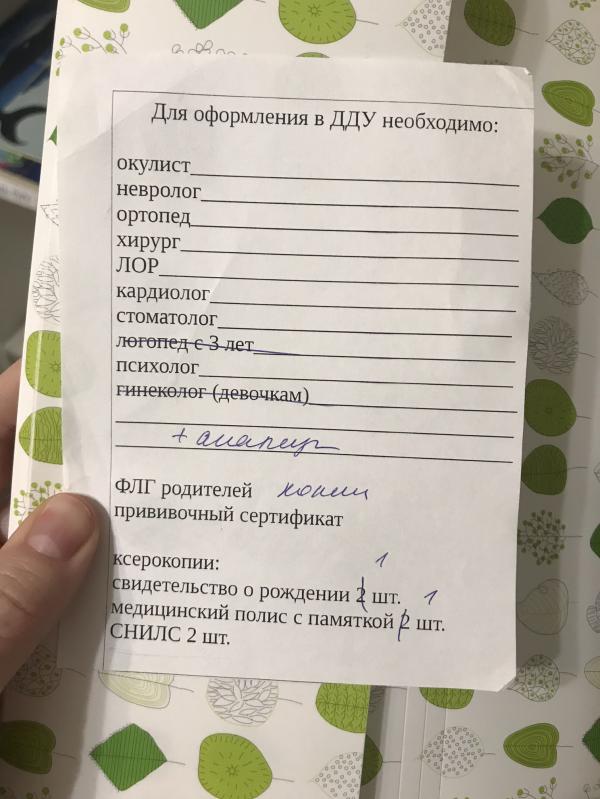 Для оформления в ДДУ необходимо:
окулист
невролог
ортопед
хирург
ЛОР
кардиолог
стоматолог
логопед с 3 лет
психолог
гинеколог (девочкам)
+ анализы
ФЛГ родителей копии
прививочный сертификат
ксерокопии:
свидетельство о рождении 2 шт. 1
медицинский полис с памяткой 2 шт. 1
СНИЛС 2 шт.